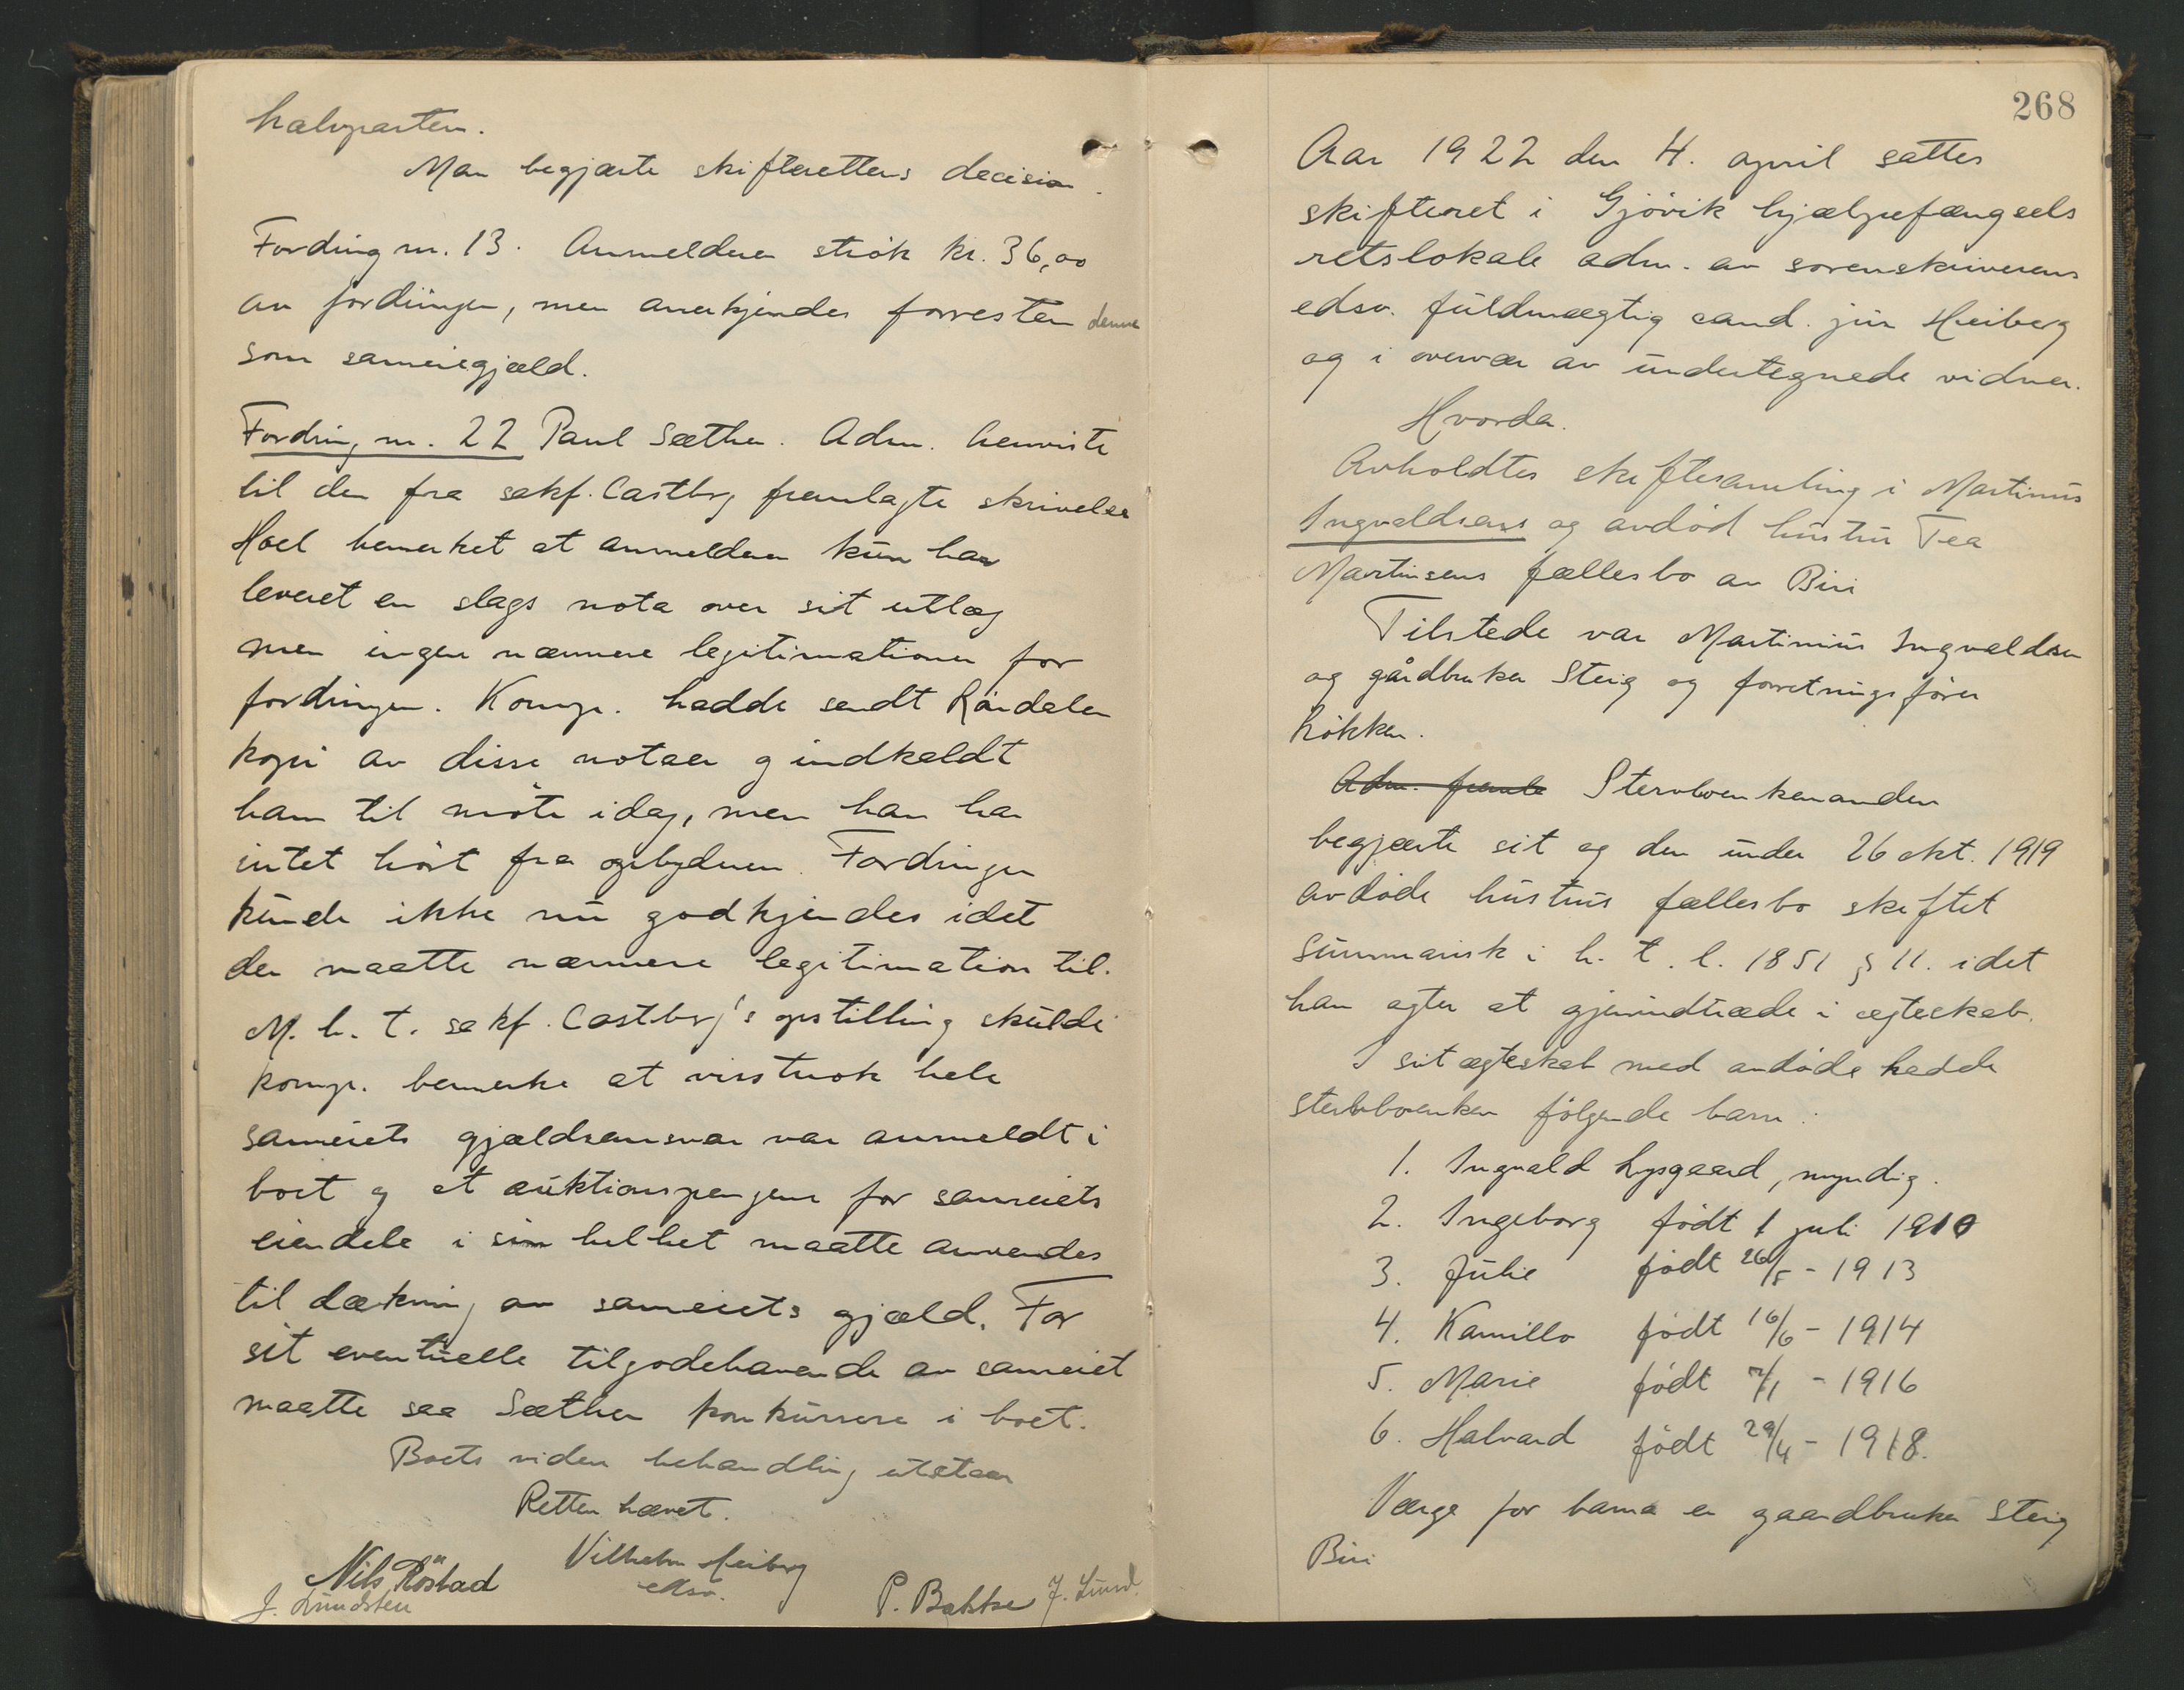 halvparten.
Man begjærte skifterettens decision.
Fordring nr. 13. Anmelderen strök kr. 36,00
av fordringen, men anerkjendes forresten denne
som sameiegjæld.
Fordring nr. 22 Paul Sæther. Adm. henviste
til den fra sakf. Castberg fremlagte skrivelse
Hoel bemerket at anmelderen kun har
leveret en slags nota over sit utlæg
men ingen nærmere legitimationer for
fordringen. Komp. hadde sendt
kopi av disse notaer og indkaldt
ham til möte idag, men han har
intet hört fra opbyderen. Fordringen
kunde ikke nu godkjendes idet
der maatte nærmere legitimation til.
M. h. t. sakf. Castberg's opstilling skulde
komp. bemerke at visstnok hele
sameiets gjældsansvar var anmeldt i
boet og at auktionspengene for sameiets
eiendele i sin helhet maatte anvendes
til dækning av sameiets gjæld. For
sit eventuelle tilgodehavende av sameiet
maatte saa Sæther konkurrere i boet.
Boets videre behandling utstaar
Retten hævet.
Vilhelm Heiberg
edsv.
Nils Röstad
J. Lundsten
P. Bakke J. Lund.
268
Aar 1922 den 4. april sattes
skifteret i Gjövik hjælpefængsels
retslokale adm. av sorenskriverens
edsv. fuldmægtig cand. jur Heiberg
og i overvær av undertegnede vidner.
Hvorda.
Avholdtes skiftesamling i Martinus
Ingvaldsens og avdöd hustru Tea
Martinsens fællesbo av Biri
Tilstede var Martinius Ingvaldsen
og gårdbruker Steig og forretningsförer
Lökken.
Adm. fremla Stervboenkemanden
begjærte sit og den under 26 okt. 1919
avdöde hustrus fællesbo skiftet
summarisk i h. t. l. 1851 § 11. idet
han agter at gjenindtræde i ægteskab.
I sit ægteskab med avdöde hadde
stervboenkem fölgende barn:
1. Ingvald Lysgaard, myndig.
2. Ingeborg födt 1 juli 1910
3. Julie födt 26/5 - 1913
4. Kamillo födt 16/6 - 1914
5. Marie födt 7/1 - 1916
6. Halvard födt 29/4 - 1918.
Værge for barna er gaardbruker Steig
Biri